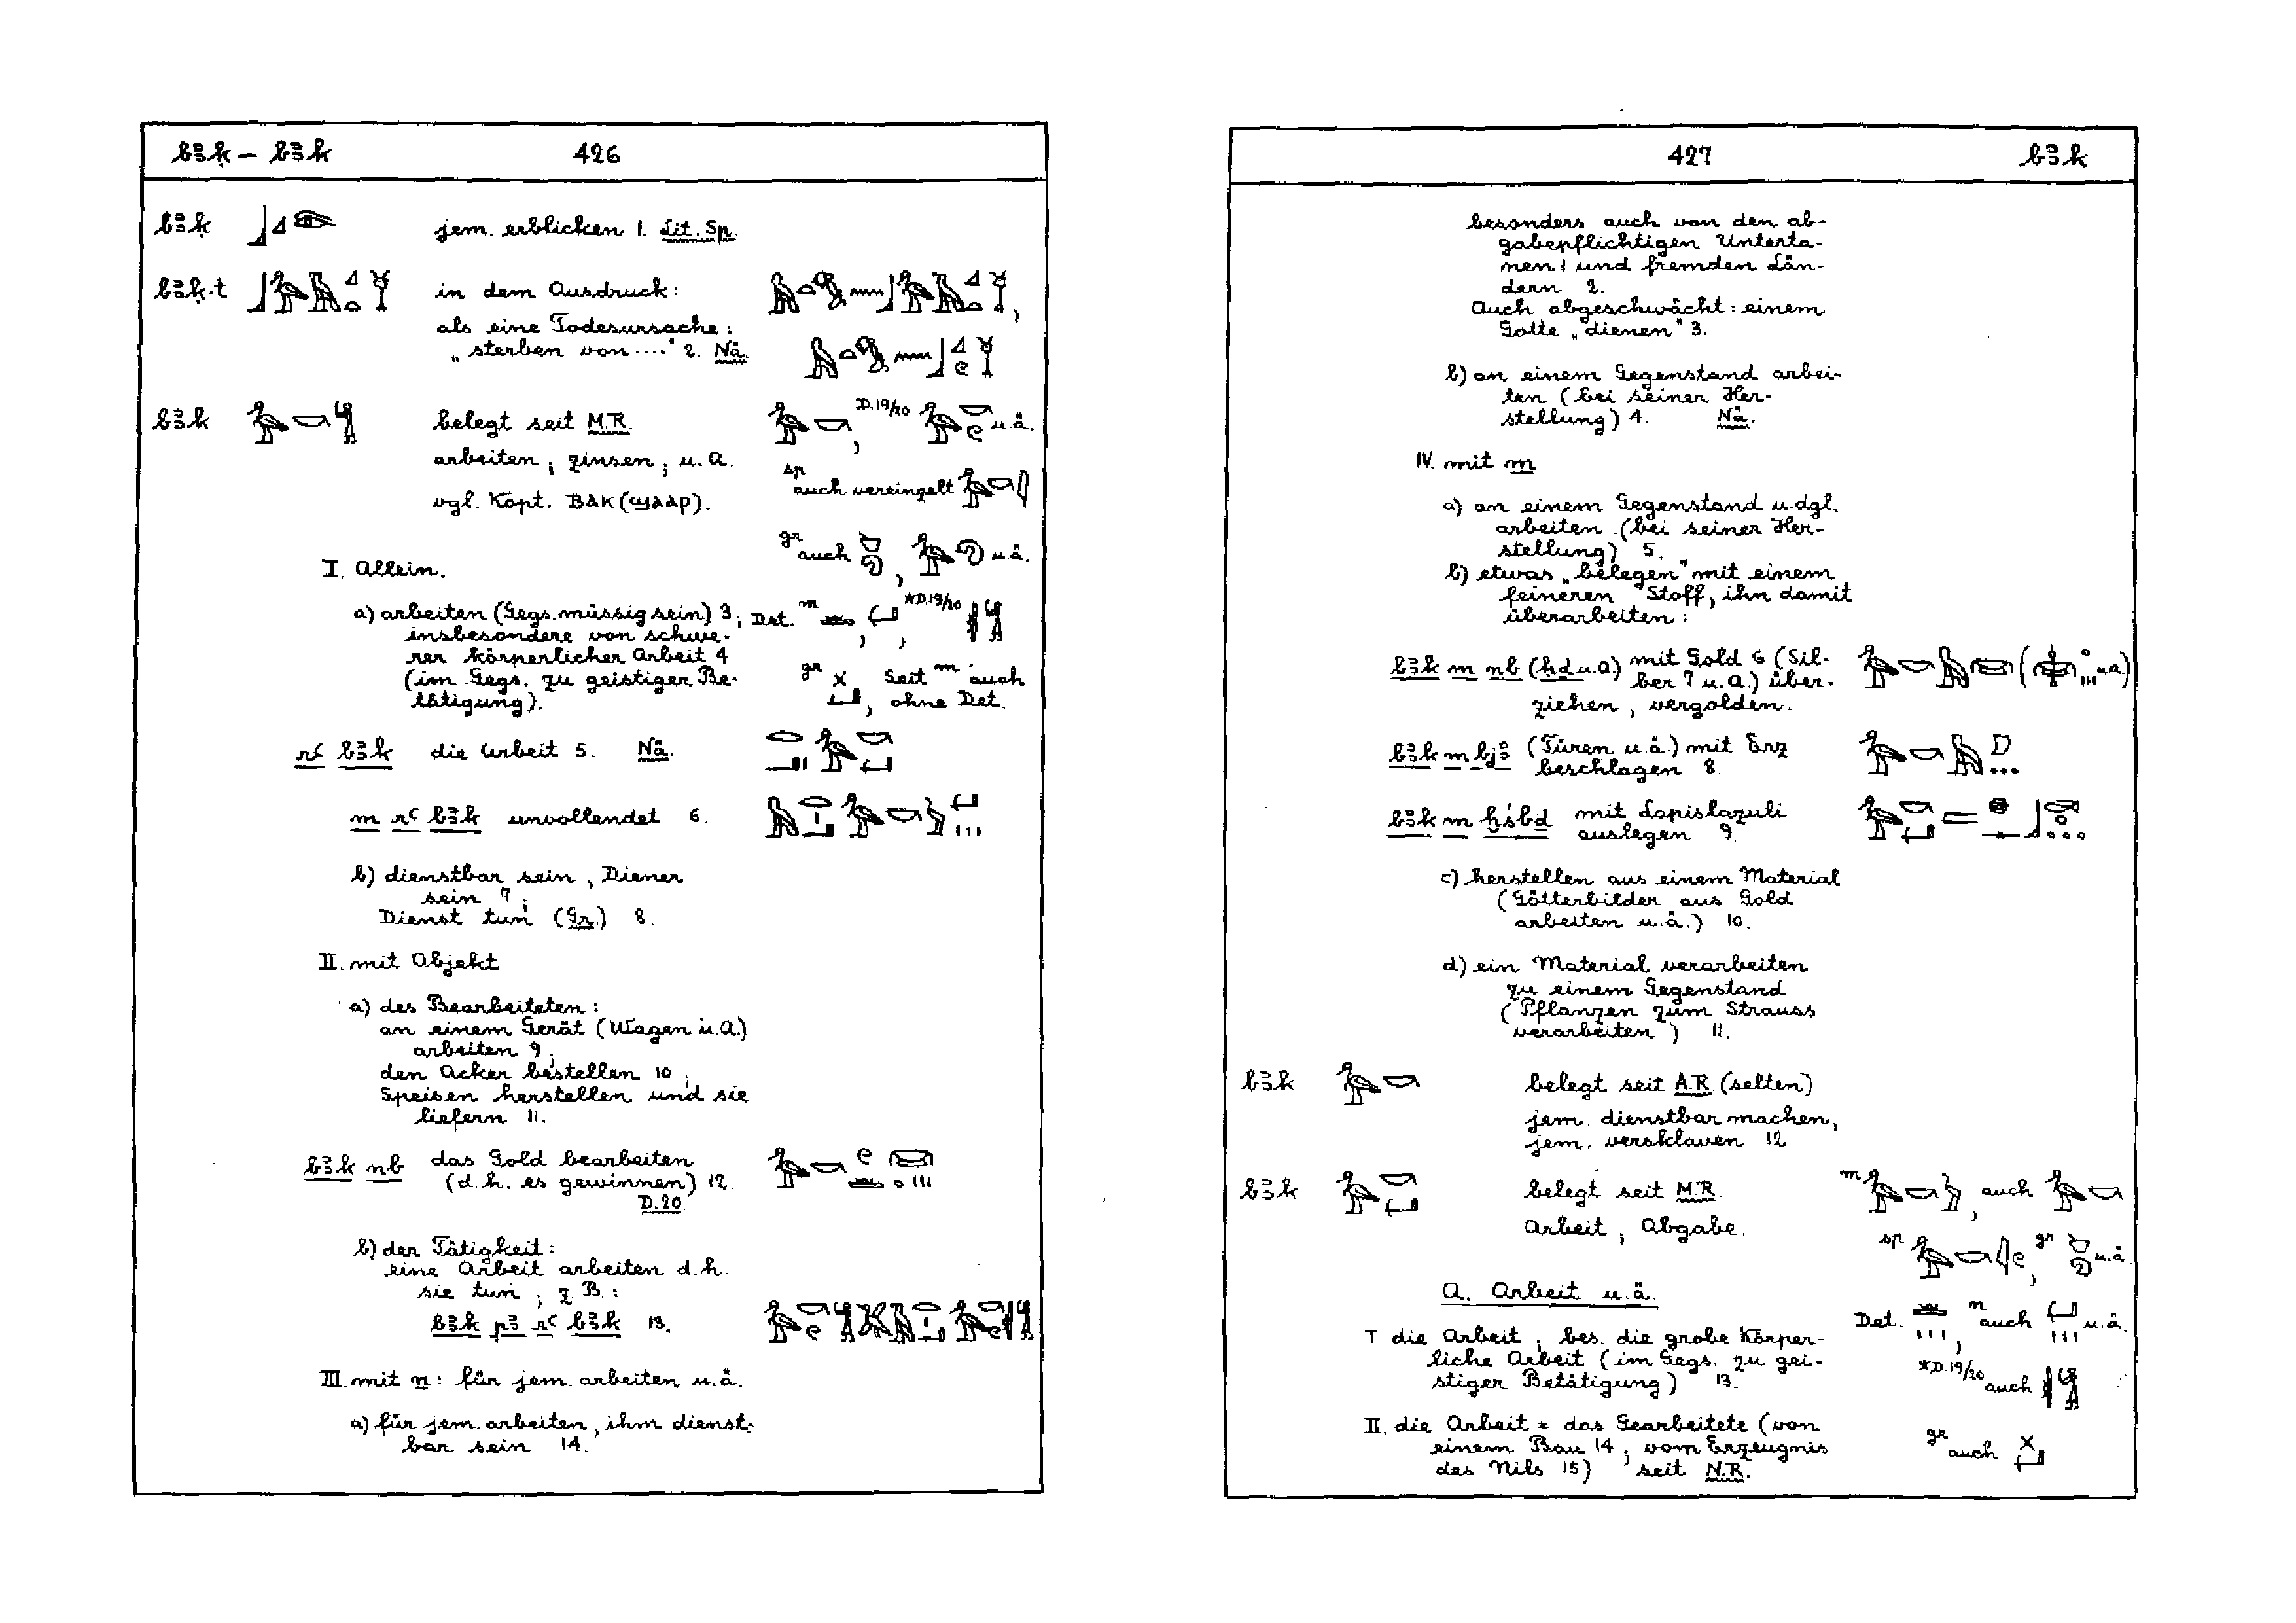 bꜣḳ — bꜣk 426
bꜣḳ jem. erblicken 1. Lit. Sp.
bꜣḳ.t in dem Ausdruck:
als eine Todesursache:
„sterben von ····" 2. Nä.
bꜣk belegt seit M.R. D.19/20 u.ä.
arbeiten; zinsen; u.a. sp auch vereinzelt
vgl. Kopt. ⲃⲁⲕ (ϣⲁⲁⲣ).
gr auch , u.ä.
I. Allein.
a) arbeiten (Gegs. müssig sein) 3; Det. m , , *D.19/20
insbesondere von schwe-
rer körperlicher Arbeit 4
(im Gegs. zu geistiger Be- gr , seit m auch
tätigung). ohne Det.
rꜥ bꜣk die Arbeit 5. Nä.
m rꜥ bꜣk unvollendet 6.
b) dienstbar sein, Diener
sein 7;
Dienst tun (Gr.) 8.
II. mit Objekt
a) des Bearbeiteten:
an einem Gerät (Wagen u.a.)
arbeiten 9;
den Acker bestellen 10;
Speisen herstellen und sie
liefern 11.
bꜣk nb das Gold bearbeiten
(d.h. es gewinnen) 12.
D.20.
b) der Tätigkeit:
eine Arbeit arbeiten d.h.
sie tun; z.B.:
bꜣk pꜣ rꜥ bꜣk 13.
III. mit n: für jem. arbeiten u.ä.
a) für jem. arbeiten, ihm dienst-
bar sein 14.
427 bꜣk
besonders auch von den ab-
gabepflichtigen Unterta-
nen 1 und fremden Län-
dern 2.
Auch abgeschwächt: einem
Gotte „dienen" 3.
b) an einem Gegenstand arbei-
ten (bei seiner Her-
stellung) 4. Nä.
IV. mit m
a) an einem Gegenstand u.dgl.
arbeiten (bei seiner Her-
stellung) 5.
b) etwas „belegen" mit einem
feineren Stoff, ihn damit
überarbeiten:
bꜣk m nb (ḥḏ u.a) mit Gold 6 (Sil- ( u.a.)
ber 7 u.a.) über-
ziehen, vergolden.
bꜣk m bjꜣ (Türen u.ä.) mit Erz
beschlagen 8.
bꜣk m ḫśbḏ mit Lapislazuli
auslegen 9.
c) herstellen aus einem Material
(Götterbilder aus Gold
arbeiten u.ä.) 10.
d) ein Material verarbeiten
zu einem Gegenstand
(Pflanzen zum Strauss
verarbeiten) 11.
bꜣk belegt seit A.R. (selten)
jem. dienstbar machen,
jem. versklaven 12
bꜣk belegt seit M.R. m , auch
Arbeit; Abgabe.
sp , gr u.ä.
A. Arbeit u.ä.
Det. , n auch u.ä.
I die Arbeit; bes. die grobe Körper-
liche Arbeit (im Gegs. zu gei-
stiger Betätigung) 13. *D.19/20 auch
II. die Arbeit = das Gearbeitete (von
einem Bau 14; vom Erzeugnis gr auch
des Nils 15) seit N.R.